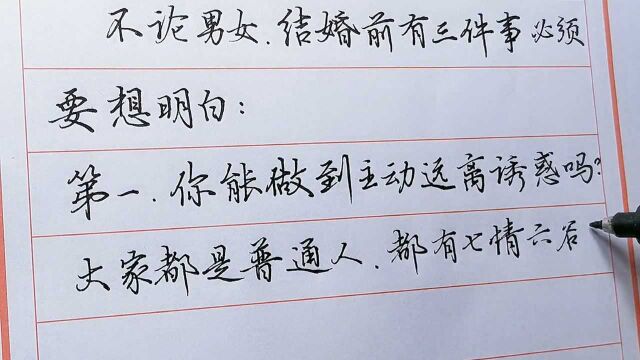 不论男女.结婚前有三件事必须
要想明白:
第一.你能做到主动远离诱惑吗?
大家都是普通人.都有七情六谷